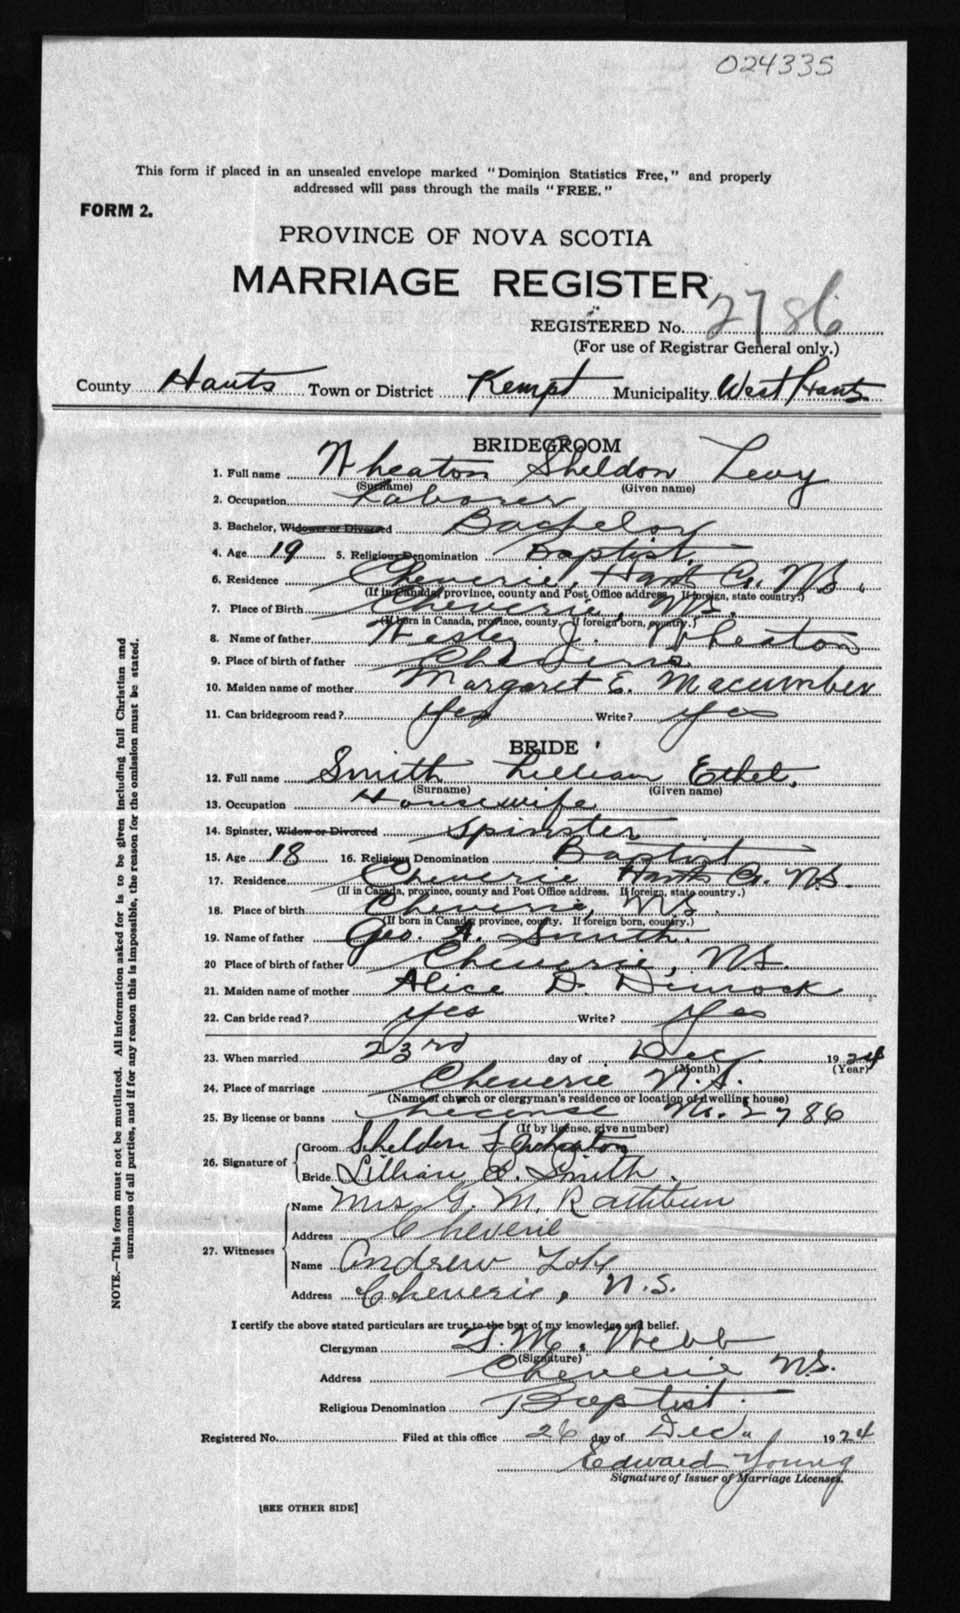 024335
This form if placed in an unsealed envelope marked "Dominion Statistics Free," and properly
addressed will pass through the mails "FREE."
FORM 2.
PROVINCE OF NOVA SCOTIA
MARRIAGE REGISTER
REGISTERED No. 2786
(For use of Registrar General only.)
County Hants Town or District Kempt Municipality West Hants
BRIDEGROOM
1. Full name Wheaton Sheldon Levy
(Surname) (Given name)
2. Occupation Laborer
3. Bachelor, Widower or Divorced Bachelor
4. Age 19 5. Religious Denomination Baptist
6. Residence Cheverie, Hant Co. N.S.
(If in Canada, province, county and Post Office address. If foreign, state country.)
7. Place of Birth Cheverie, N.S.
(If born in Canada, province, county. If foreign born, country.)
8. Name of father Wesley J. Wheaton
9. Place of birth of father Cheverie
10. Maiden name of mother Margaret E. Macumber
11. Can bridegroom read? Yes Write? Yes
BRIDE
12. Full name Smith Lillian Ethel,
(Surname) (Given name)
13. Occupation Housewife
14. Spinster, Widow or Divorced Spinster
15. Age 18 16. Religious Denomination Baptist
17. Residence Cheverie Hants Co. N.S.
(If in Canada, province, county and Post Office address. If foreign, state country.)
18. Place of birth Cheverie, N.S.
(If born in Canada, province, county. If foreign born, country.)
19. Name of father Geo. A. Smith.
20 Place of birth of father Cheverie, N.S.
21. Maiden name of mother Alice D. Dimock
22. Can bride read? Yes Write? Yes
23. When married 23rd day of Dec. 1924
(Month) (Year)
24. Place of marriage Cheverie N.S.
(Name of church or clergyman's residence or location of dwelling house)
25. By license or banns License No. 2786
(If by license, give number)
26. Signature of
Groom Sheldon L Wheaton
Bride Lillian E. Smith.
27. Witnesses
Name Mrs G. M. Rathbun
Address Cheverie
Name Andrew
Address Cheverie, N.S.
I certify the above stated particulars are true to the best of my knowledge and belief.
Clergyman M. Webb
(Signature)
Address Cheverie N.S.
Religious Denomination Baptist.
Registered No. Filed at this office 26 day of Dec 1924
Edward Young
Signature of Issuer of Marriage Licenses.
[SEE OTHER SIDE]
NOTE.—This form must not be mutilated. All information asked for is to be given including full Christian and
surnames of all parties, and if for any reason this is impossible, the reason for the omission must be stated.